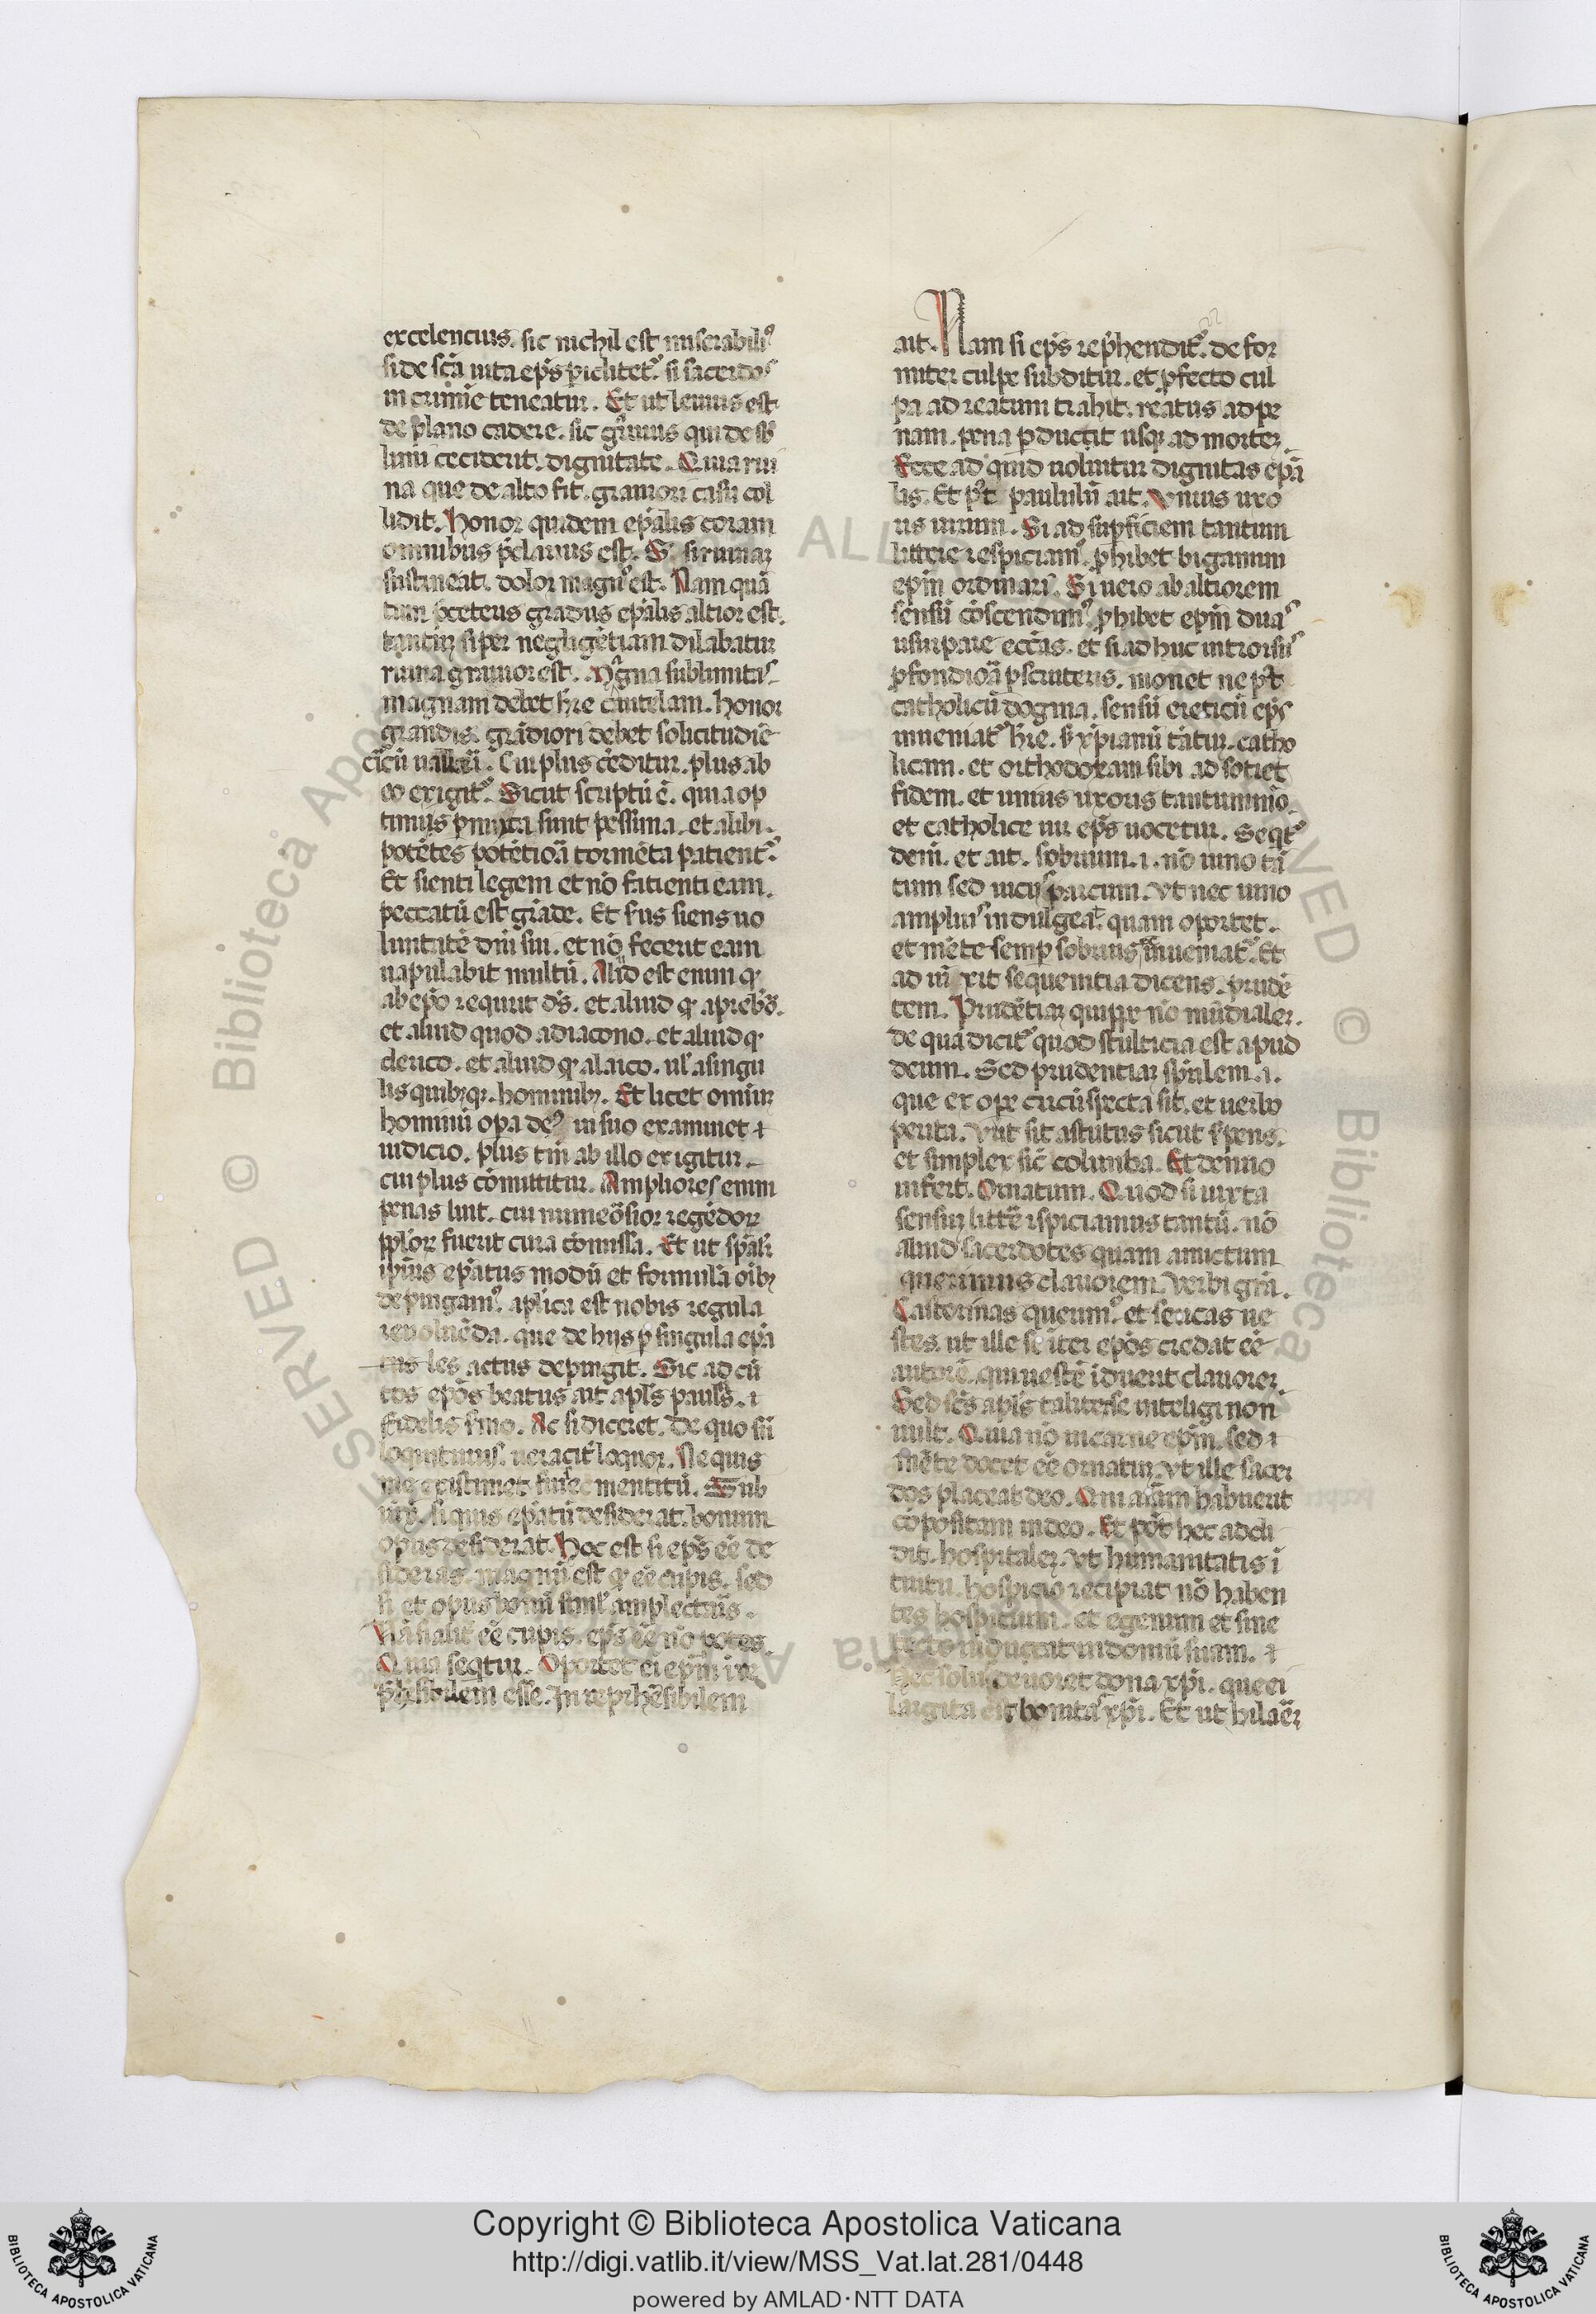 excelencius. sic nichil est miserabiliꝰ
si de sc̄a uita ep̄s piclitet᷑. si sacerdos
in crimīe teneatur. Et ut leuius est
de plano cadere. sic gͣuius qui de sb̄
limi ceciderit. dignitate. Quia rui
na que de alto fit. grauiori casu col
lidit. Honor quidem ep̄alis coram
omnibus p̄clarus est. S; si ruinaꝫ
sustineat. dolor magnꝰ est. Nam quā
tum p̄ceteris gradus ep̄alis altior est.
tantūꝫ si per negligētiam dilabatur
ruina grauior est. Mͣgna sublimitas
magnam debet h̄re cautelam. Honor
grandis. grādiori debet solicitudīe
Cui plus c̄editur. plus ab
eo exigit᷑. Sicut scriptū ē. quia op
timis p̄mixta sunt pessima. et alibi.
potētes potētioā tormēta patient᷑.
Et sienti legem et nō fatienti eam.
peccatū est grāde. Et s̓us siens uo
luntatē dn̄i sui. et nō fecerit eam
uapulabit multū. Aliud est enim qͦ
ab ep̄o requirit dſ̄. et aliud qͦ a prebrō.
et aliud quod a diacono. et aliud qͦ
clerico. et aliud qͦ a laico. ul̓ a singu
lis quibꝫqꝫ. hominibꝫ. Et licet omniū
hominū opa deꝰ in suo examinet ⁊
iudicio. plus tn̄ ab illo exigitur.
cui plus cōmittitur. Ampliores enim
penas luit. cui numeōsior regēdoꝝ
pploꝝ fuerit cura cōmissa. Et ut
ipsius ep̄atus modū et formulā oībꝫ
depingamꝰ. aplica est nobis regula
reuoluēda. que de hijs p singula ep̄a
les actus depingit. Sic ad cū
tos ep̄os beatus ait apl̄s paulꝰ. ⁊
fidelis s̓mo. Ac si diceret. De quo sū
loquuturus. ueracit̓ loquor. Ne quis
me existimet mentitū. Sub
si quis ep̄atū desiderat. bonum
opus desiderat. Hoc est si ep̄s eē de
sideras. magnū est qͦ eē cupis. sed
si et opus bonū simul̓ amplectaris.
Nā si alit̓ eē cupis. ep̄s eē nō potes.
Quia seqtur. Oportet ei ep̄m ire
p̄hensibilem esse. Inreprhēsibilem
ait. Nam si ep̄s rep̄henditᷣ. de for
miter culpe subditur. et pfecto cul
pa ad reatum trahit. reatus ad pe
nam. pena pducit usqꝫ ad morteꝫ.
Ecce ad quid uoluitur dignitas ep̄a
lis. Et pͦt paululū ait. Unius uxo
ris uirum. Si ad supficiem tantum
littere respiciamꝰ. phibet bigamum
ep̄m ordinari. Si uero ab altiorem
sensū cōscendimꝰ. phibet ep̄m duas
usurpare ecc̄as. et si adhuc introrsus
pfondioā pscruteris. monet ne pͦt
catholicū dogma. sensū ereticū ep̄s
inueniatᷣ h̄re. s; xp̄ianū tātūꝫ. catho
licam. et orthodoxam sibi ad sotiet
fidem. et unius uxoris tantummō.
et catholice uir ep̄s uocetur. Seqtᷣ
dein̄. et ait. sobrium. ⁊. nō uino tā
tum sed parcum. Vt nec uino
amplius indulgeat. quam oportet.
et mēte semp sobrius inueniatᷣ. Et
ad iū xit sequentia dicens. prudē
tem. Prudētiaꝫ quippe nō mūdialeꝫ.
de qua dicitᷣ quod stulticia est apud
deum. Sed prudentiaꝫ spūalem. ⁊.
que ex ope circūspecta sit. et uerbo
perita. Vnt sit astutus sicut s̓pens.
et simplex sic̄ columba. Et denuo
infert. Ornatum. Quod si iuxta
sensuꝫ litt̄e rspiciamus tantū. nō
aliud sacerdotes quam amictum
querimus clariorem. Verbi grā.
Castorinas querimꝰ. et sericas ue
stes. ut ille se īter ep̄os credat eē
autorē. qui uestē īduerit clarioreꝫ.
Sed sc̄s apl̄s taliter se inteligi non
uult. Quia nō in carne ep̄m. sed ⁊
mēte docet eē ornatuꝫ. Vt ille sacer
dos placeat deo. Qui aīam habuerit
cōpositam in deo. Et pͦt hec addi
dit. hospitaleꝫ. Vt humanitatis ī
tuitu. hospicio recipiat nō haben
tes hospitium. et egenum et sine
tecto inducat in domū suam. ⁊
Nec solus deuoret dona xp̄i. que ei
largita est bonitas xp̄i. Et ut hilaēꝫ
Copyright © Biblioteca Apostolica Vaticana
http://digi.vatlib.it/view/MSS_Vat.lat.281/0448
powered by AMLAD·NTT DATA